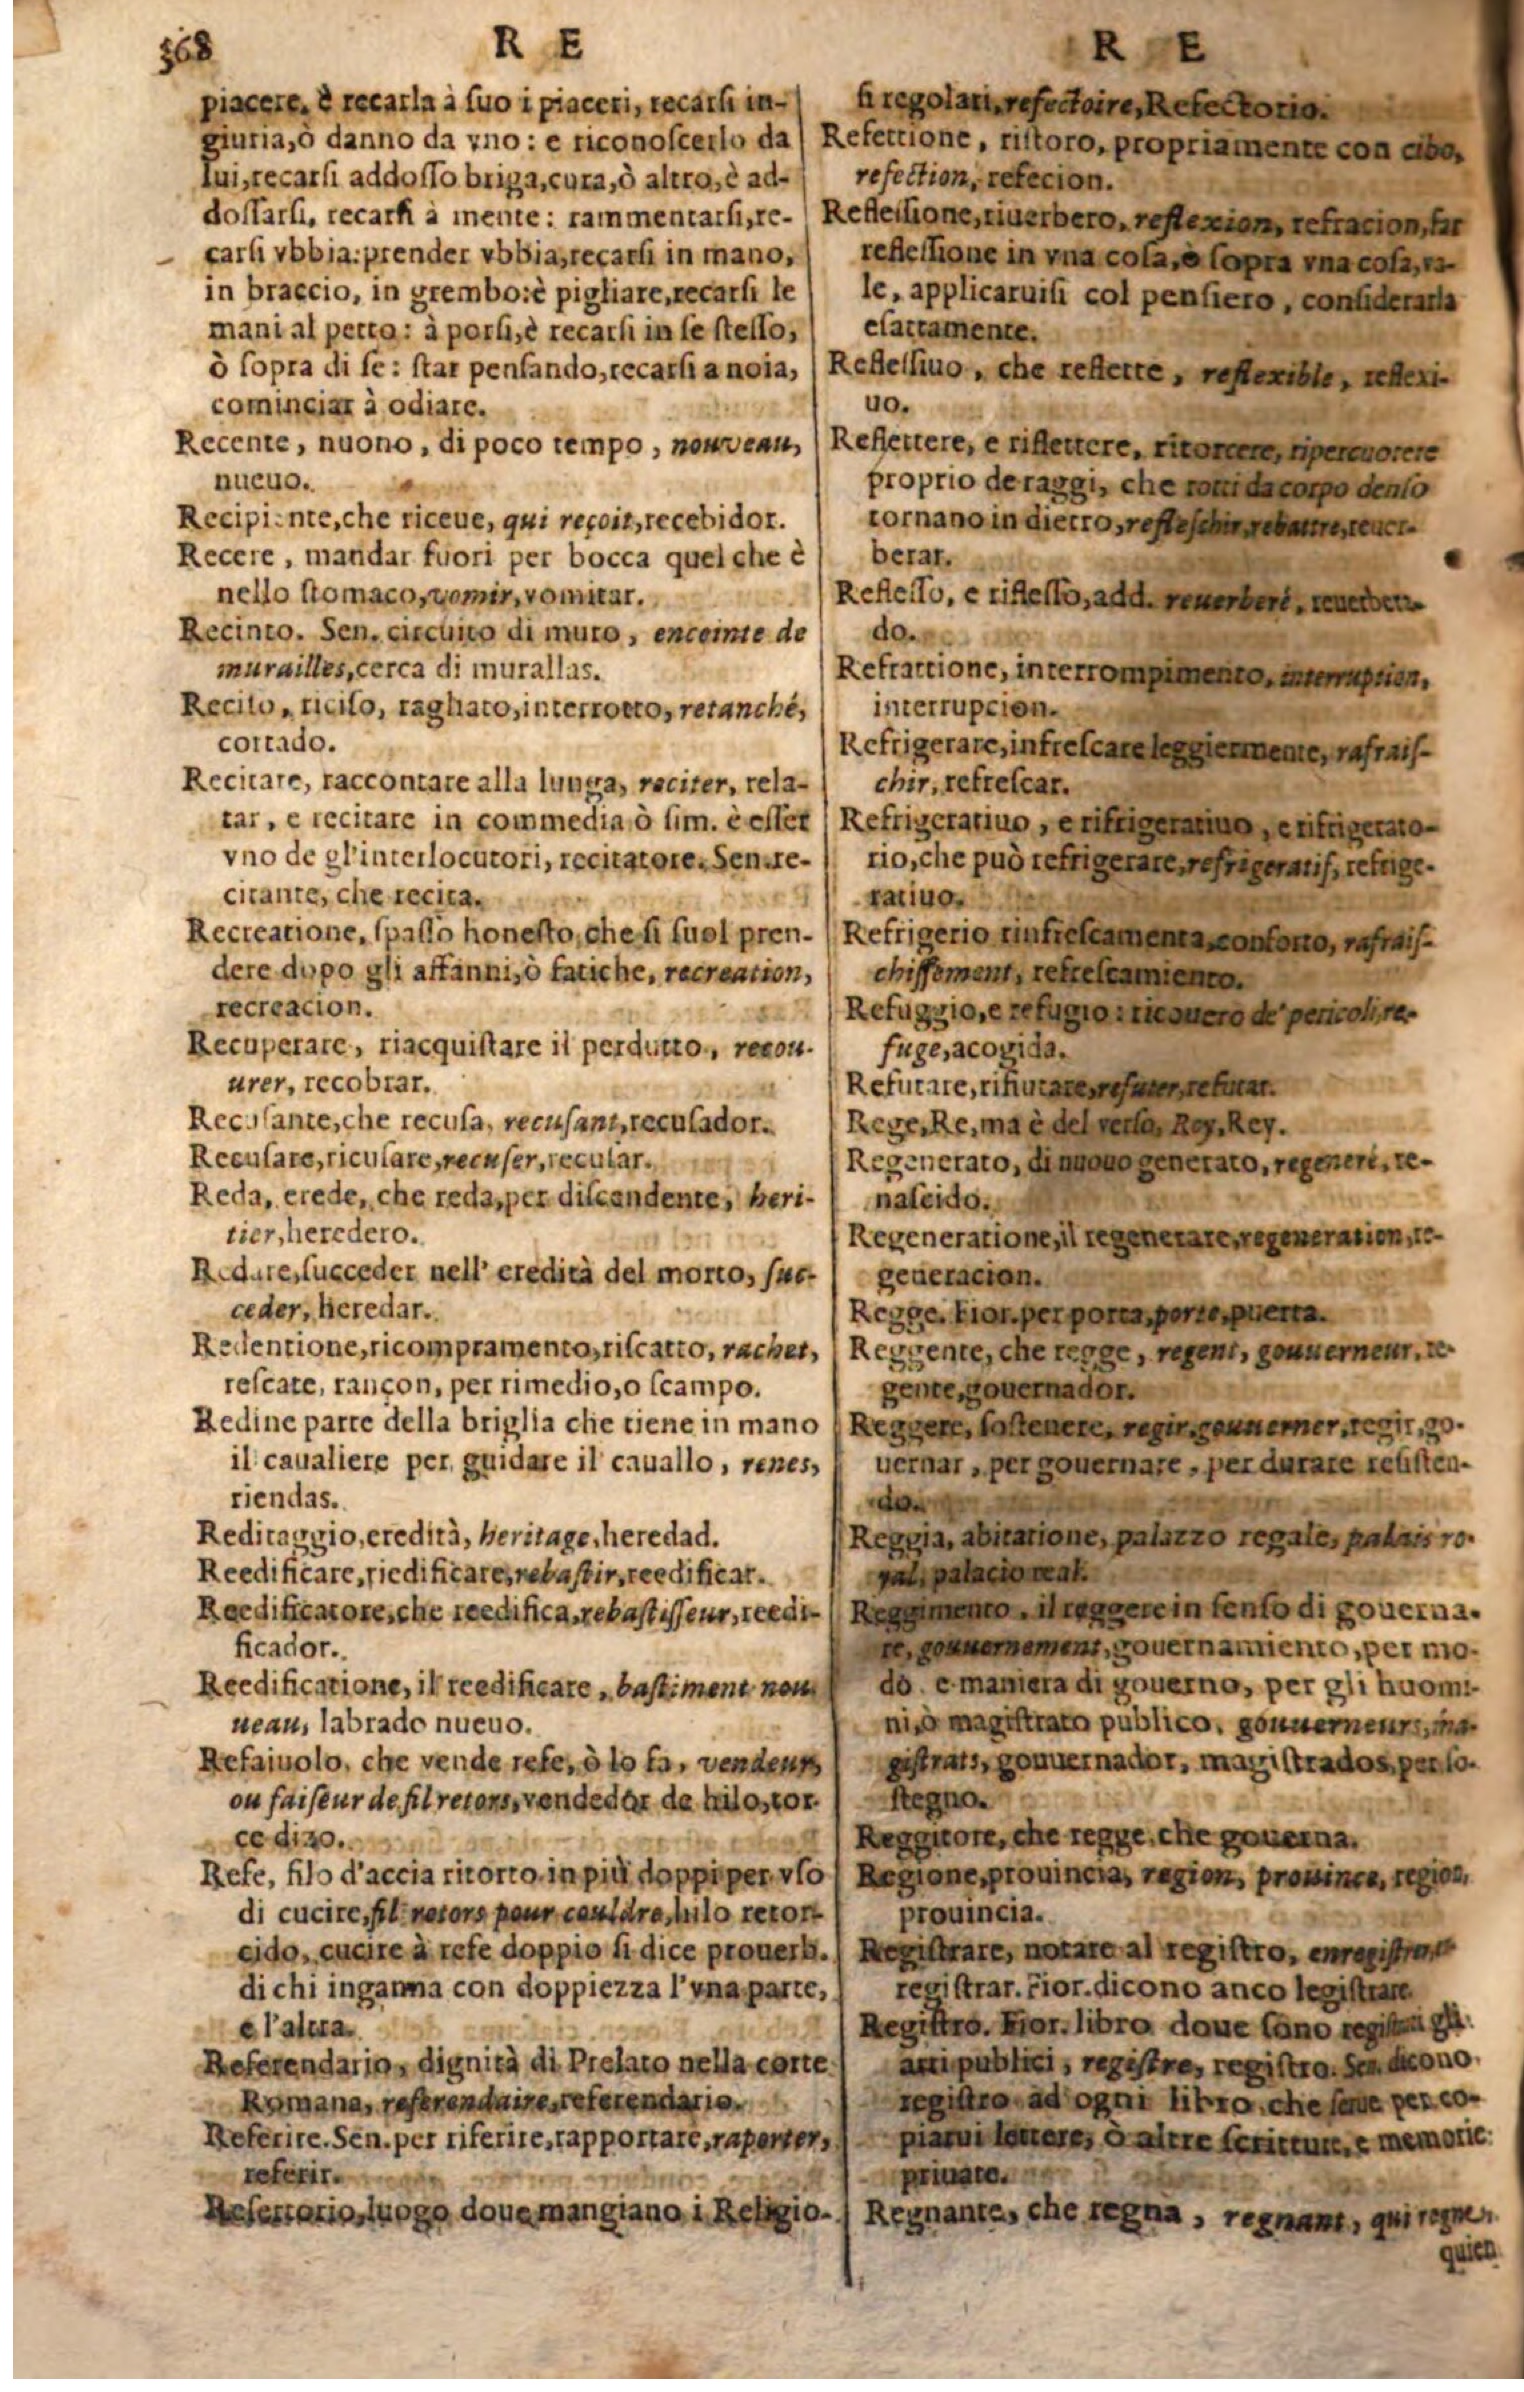 368
R E
piacere, è recarla à suo i piaceri, recarſi in-
giuria,ò danno da vno: e riconoſcerlo da
lui,recarſi addoſſo briga,cura,ò altro,è ad-
doſſarſi, recarſi à mente: rammentarſi,re-
carſi vbbia:prender vbbia,recarſi in mano,
in braccio, in grembo:è pigliare,recarſi le
mani al petto: à porſi,è recarſi in ſe ſteſſo,
ò ſopra di ſe: ſtar penſando,recarſi a noia,
cominciar à odiare.
Recente, nuono, di poco tempo, nouveau,
nueuo.
Recipiente,che riceue, qui reçoit,recebidor.
Recere, mandar fuori per bocca quel che è
nello ſtomaco,vomir,vomitar.
Recinto. Sen. circuito di muro, enceinte de
murailles,cerca di murallas.
Reciſo, riciſo, tagliato,interrotto, retanché,
cortado.
Recitare, raccontare alla lunga, reciter, rela-
tar, e recitare in commedia ò ſim. è eſſer
vno de gl'interlocutori, recitatore. Sen.re-
citante, che recita.
Recreatione, ſpaſſo honeſto,che ſi ſuol pren-
dere dopo gli affanni,ò fatiche, recreation,
recreacion.
Recuperare, riacquiſtare il perdutto, recou-
urer, recobrar.
Recuſante,che recuſa, recuſant,recuſador.
Recuſare,ricuſare,recuſer,recuſar.
Reda, erede, che reda,per diſcendente, heri-
tier,heredero.
Redare,ſucceder nell' eredità del morto, ſuc-
ceder, heredar.
Redentione,ricompramento,riſcatto, rachet,
reſcate, rançon, per rimedio,o ſcampo.
Redine parte della briglia che tiene in mano
il caualiere per guidare il cauallo, renes,
riendas.
Reditaggio,eredità, heritage,heredad.
Reedificare,riedificare,rebaſtir,reedificar.
Reedificatore,che reedifica,rebaſtiſſeur,reedi-
ficador.
Reedificatione, il reedificare, baſtiment nou-
ueau, labrado nueuo.
Refaiuolo, che vende refe, ò lo fa, vendeur,
ou faiſeur de fil retors,vendedor de hilo,tor-
ce dizo.
Refe, filo d'accia ritorto in più doppi per vſo
di cucire,fil retors pour couldre,hilo retor-
cido, cucire à refe doppio ſi dice prouerb.
di chi inganna con doppiezza l'vna parte,
e l'altra.
Referendario, dignità di Prelato nella corte
Romana, referendaire,referendario.
Referire.Sen.per riferire,rapportare,raporter,
referir.
Refettorio,luogo doue mangiano i Religio-
R E
ſi regolari,refectoire,Refectorio.
Refettione, riſtoro, propriamente con cibo,
refection, refecion.
Refleſſione,riuerbero, reflexion, refracion,far
refleſſione in vna coſa,ò ſopra vna coſa,va-
le, applicaruiſi col penſiero, conſiderarla
eſattamente.
Refleſſiuo, che reflette, reflexible, reflexi-
uo.
Reflettere, e riflettere, ritorcere, ripercuotere
proprio de raggi, che rotti da corpo denſo
tornano in dietro,refleſchir,rebattre,reuer-
berar.
Refleſſo, e rifleſſo,add. reuerberé, reuerbera-
do.
Refrattione, interrompimento, interruption,
interrupcion.
Refrigerare,infreſcare leggiermente, rafraiſ-
chir, refreſcar.
Refrigeratiuo, e rifrigeratiuo, e rifrigerato-
rio,che può refrigerare,refrigeratif, refrige-
ratiuo.
Refrigerio rinfreſcamenta,conforto, rafraiſ-
chiſſement, refreſcamiento.
Refuggio,e refugio: ricouero de' pericoli,re-
fuge,acogida.
Refutare,rifiutare,refuter,refutar.
Rege,Re,ma è del verſo, Roy,Rey.
Regenerato, di nuouo generato, regeneré, re-
naſcido.
Regeneratione,il regenerare,regeneration,re-
generacion.
Regge. Fior.per porta,porte,puerta.
Reggente, che regge, regent, gouuerneur, re-
gente,gouernador.
Reggere, ſoſtenere, regir,gouuerner,regir,go-
uernar, per gouernare, per durare reſiſten-
do.
Reggia, abitatione, palazzo regale, palais ro-
yal, palacio real.
Reggimento, il reggere in ſenſo di gouerna-
re, gouuernement,gouernamiento,per mo-
do e maniera di gouerno, per gli huomi-
ni,ò magiſtrato publico, gouuerneurs, ma-
giſtrats, gouuernador, magiſtrados,per ſo-
ſtegno.
Reggitore, che regge,che gouerna.
Regione,prouincia, region, prouince, region,
prouincia.
Regiſtrare, notare al regiſtro, enregiſtrer,
regiſtrar. Fior.dicono anco legiſtrare.
Regiſtro. Fior. libro doue ſono regiſtrati gli
atti publici, regiſtre, regiſtro. Sen. dicono
regiſtro ad ogni libro,che ſerue per co-
piarui lettere, ò altre ſcritture, e memorie
priuate.
Regnante, che regna, regnant, qui regne,
quien